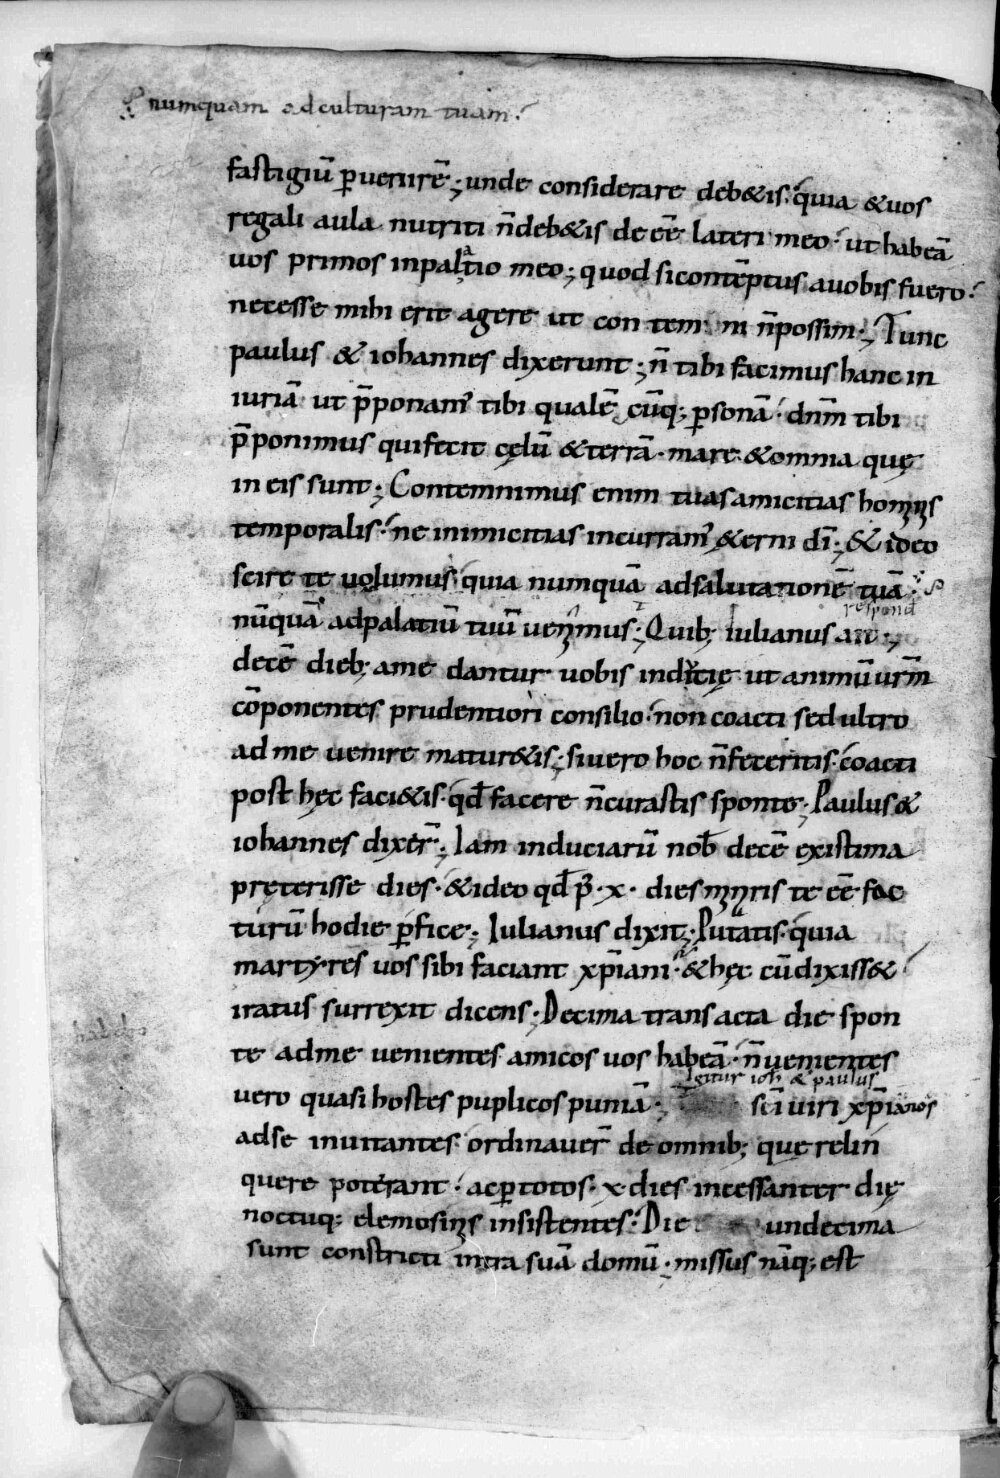 numquam ad culturam tuam
fastigiū ꝑuenirē; unde considerare deb&is quia & uos
regali aula nutriti n̄ deb&is deēē lateri meo ut habeā
uos primos in palatio meo; quod si contēptus a uobis fuero
necesse mihi erit agere ut contemni n̄ possim; Tunc
paulus & iohannes dixerunt; n̄ tibi facimus hanc in
iuriā ut p̄ponam' tibi qualē cūq; ꝑsonā · dn̄m tibi
p̄ponimus qui fecit cęlū & terrā · mare & omnia quę
in eis sunt; Contemnimus enim tuas amicitias hominis
temporalis · ne inimicitias incurram' &erni dī; & ideo
scire te uolumus quia numquā ad salutationē tuā
respond
nūquā ad palatiū tuū uenimus; Quib; iulianus ait;
decē dieb; a me dantur uobis indutię ut animū urm̄
cōponentes prudentiori consilio · non coacti sed ultro
ad me uenire matur&is; si uero hoc n̄ feceritis · coacti
post hęc faci&is · qđ facere n̄ curastis sponte; Paulus &
iohannes dixer̄; Iam induciarū nob̄ decē existima
pręterisse dies · & ideo qđ p̄ · x · dies minaris te ēē fac
turū hodie ꝑfice; Iulianus dixit; Putatis quia
martyres uos sibi faciant xp̄iani · & hęc cū dixiss&
iratus surrexit dicens; Decima transacta die spon
te ad me uenientes amicos uos habeā · n̄ uenientes
Igitur ioh̄ & paulus
uero quasi hostes puplicos puniā · sc̄i uiri xp̄ianos
ad se inuitantes ordinauer̄ de omnib; quę relin
quere poterant · ac ꝑ totos · x · dies incessanter dię
noctuq; elemosinis insistentes · Die undecima
sunt constricti intra suā domū · missus nāq; est